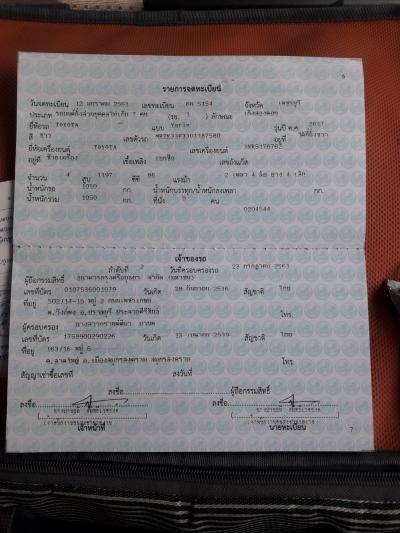 6
รายการจดทะเบียน
วันจดทะเบียน 12 มกราคม 2561 เลขทะเบียน กต 5154 จังหวัด เพชรบุรี
ประเภท รถยนต์นั่งส่วนบุคคลไม่เกิน 7 คน (รย. 1 ) ลักษณะ เก๋งสองตอน
ยี่ห้อรถ TOYOTA แบบ Yaris รุ่นปี ค.ศ. 2017
สี ขาว เลขตัวรถ อยู่ที่
ยี่ห้อเครื่องยนต์ TOYOTA เลขเครื่องยนต์
อยู่ที่ เชื้อเพลิง เลขถังแก๊ส
จำนวน 4 สูบ 1197 ซีซี 86 แรงม้า 2 เพลา 4 ล้อ ยาง 4 เส้น
น้ำหนักรถ 1050 กก. น้ำหนักบรรทุก/น้ำหนักลงเพลา กก.
น้ำหนักรวม 1050 กก. ที่นั่ง คน
0204544
เจ้าของรถ
ลำดับที่ 2 วันที่ครอบครองรถ 23 กรกฎาคม 2561
ผู้ถือกรรมสิทธิ์ ธนาคารกรุงศรีอยุธยา จำกัด (มหาชน)
เลขที่บัตร 0107536001079 วันเกิด 28 กันยายน 2536 สัญชาติ ไทย
ที่อยู่ 502/14-15 หมู่ 2 ถนนเพชรเกษม
ต.วังก์พง อ.ปราณบุรี ประจวบคีรีขันธ์ โทร.
ผู้ครอบครอง
เลขที่บัตร 1769900290226 วันเกิด สัญชาติ ไทย
ที่อยู่ 163/16 หมู่ 6
ต.ลาดใหญ่ อ.เมืองสมุทรสงคราม สมุทรสงคราม โทร.
สัญญาเช่าซื้อเลขที่ ลงวันที่
ลงชื่อ ผู้ถือกรรมสิทธิ์
ลงชื่อ ลงชื่อ
เจ้าหน้าที่ นายทะเบียน
7